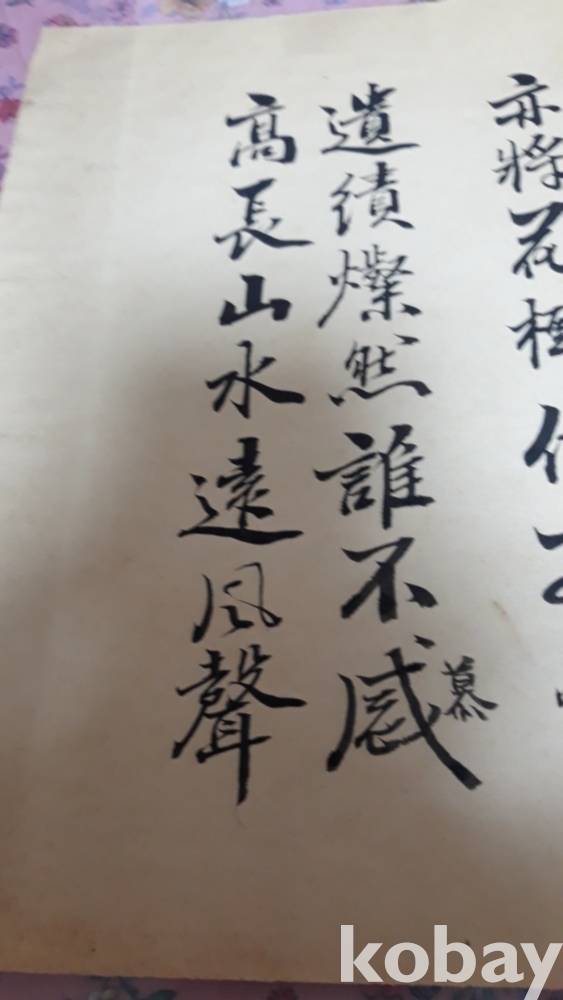 亦將花
遺績燦然誰不感
慕
高長山水遠風聲
kobay